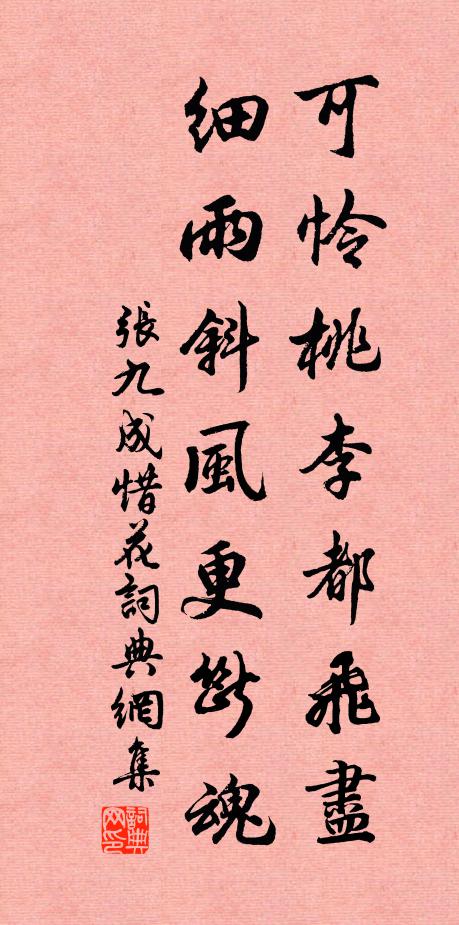 可怜桃李都飛盡
細雨斜風更斷魂
張九成惜花詞典網集
詞典网印